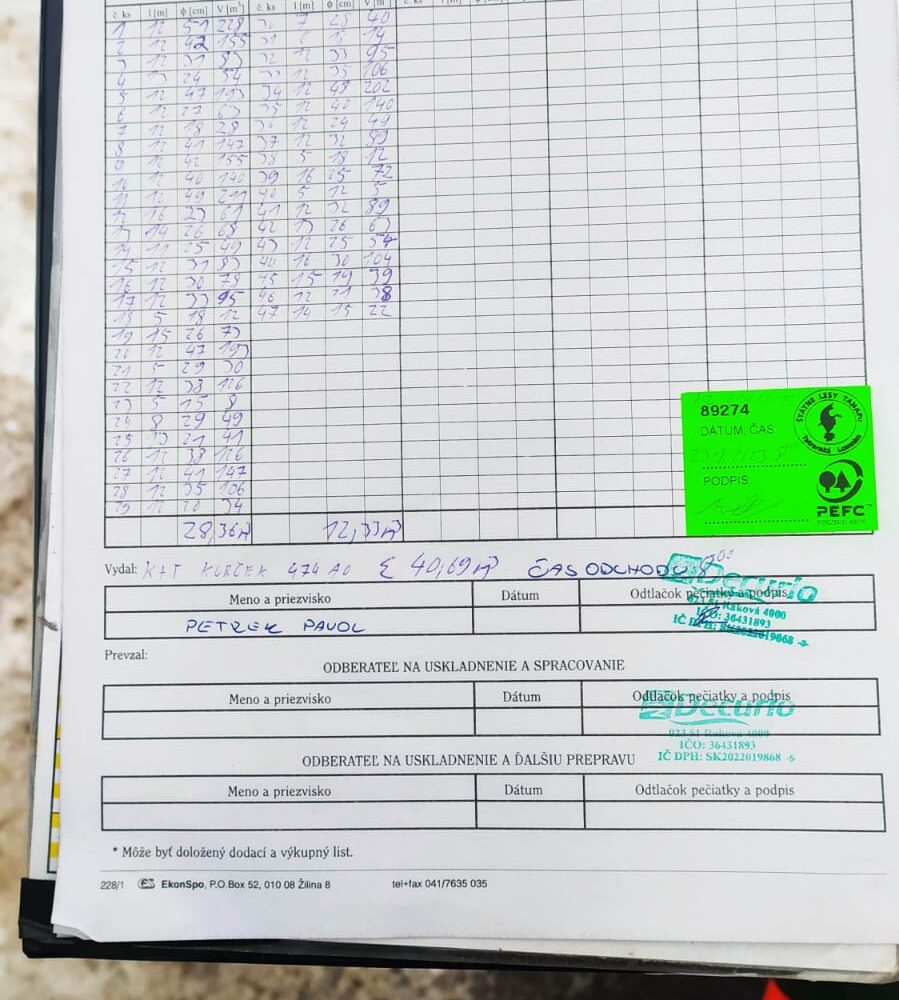 č. ks l [m] φ [cm] V [m³] č. ks l [m] φ [cm] V [m³]
1 12 51 228 7 40
2 12 42 155 14
3 12 31 83 32 12 33 95
4 13 24 54 12 35 106
5 12 47 193 34 12 48 202
6 12 27 63 35 12 40 140
7 12 18 28 36 12 29 49
8 12 41 147 37 12 32 89
9 12 42 155 38 5 18 12
10 12 40 140 39 16 25 72
11 12 49 211 40 5 12 5
12 16 23 61 41 12 32 89
13 14 26 68 42 13 26 63
14 11 25 49 43 12 25 54
15 12 31 83 16 30 104
16 12 30 78 45 15 19 39
17 12 33 95 46 12 21 38
18 5 18 12 47 14 15 22
19 15 26 73
20 12 47 193
21 5 29 30
22 12 38 126
23 5 15 8
24 8 29 49
25 13 21 41
26 12 38 126
27 12 41 147
28 12 35 106
29 12 20 34
28,36 12,33
89274
DÁTUM, ČAS
PODPIS
ŠTÁTNE LESY TANAPU
Tatranská Lomnica
PEFC
Vydal: KURČEK 474 Σ 40,69 ČAS ODCHODU
Meno a priezvisko Dátum Odtlačok pečiatky a podpis
PETREK PAVOL
Decurio
023 51 Raková 4000
IČO: 36431893
IČ DPH: SK2022019868 -6
Prevzal:
ODBERATEĽ NA USKLADNENIE A SPRACOVANIE
Meno a priezvisko Dátum Odtlačok pečiatky a podpis
Decurio
023 51 Raková 4000
IČO: 36431893
IČ DPH: SK2022019868 -6
ODBERATEĽ NA USKLADNENIE A ĎALŠIU PREPRAVU
Meno a priezvisko Dátum Odtlačok pečiatky a podpis
* Môže byť doložený dodací a výkupný list.
228/1 EkonSpo, P.O.Box 52, 010 08 Žilina 8 tel+fax 041/7635 035